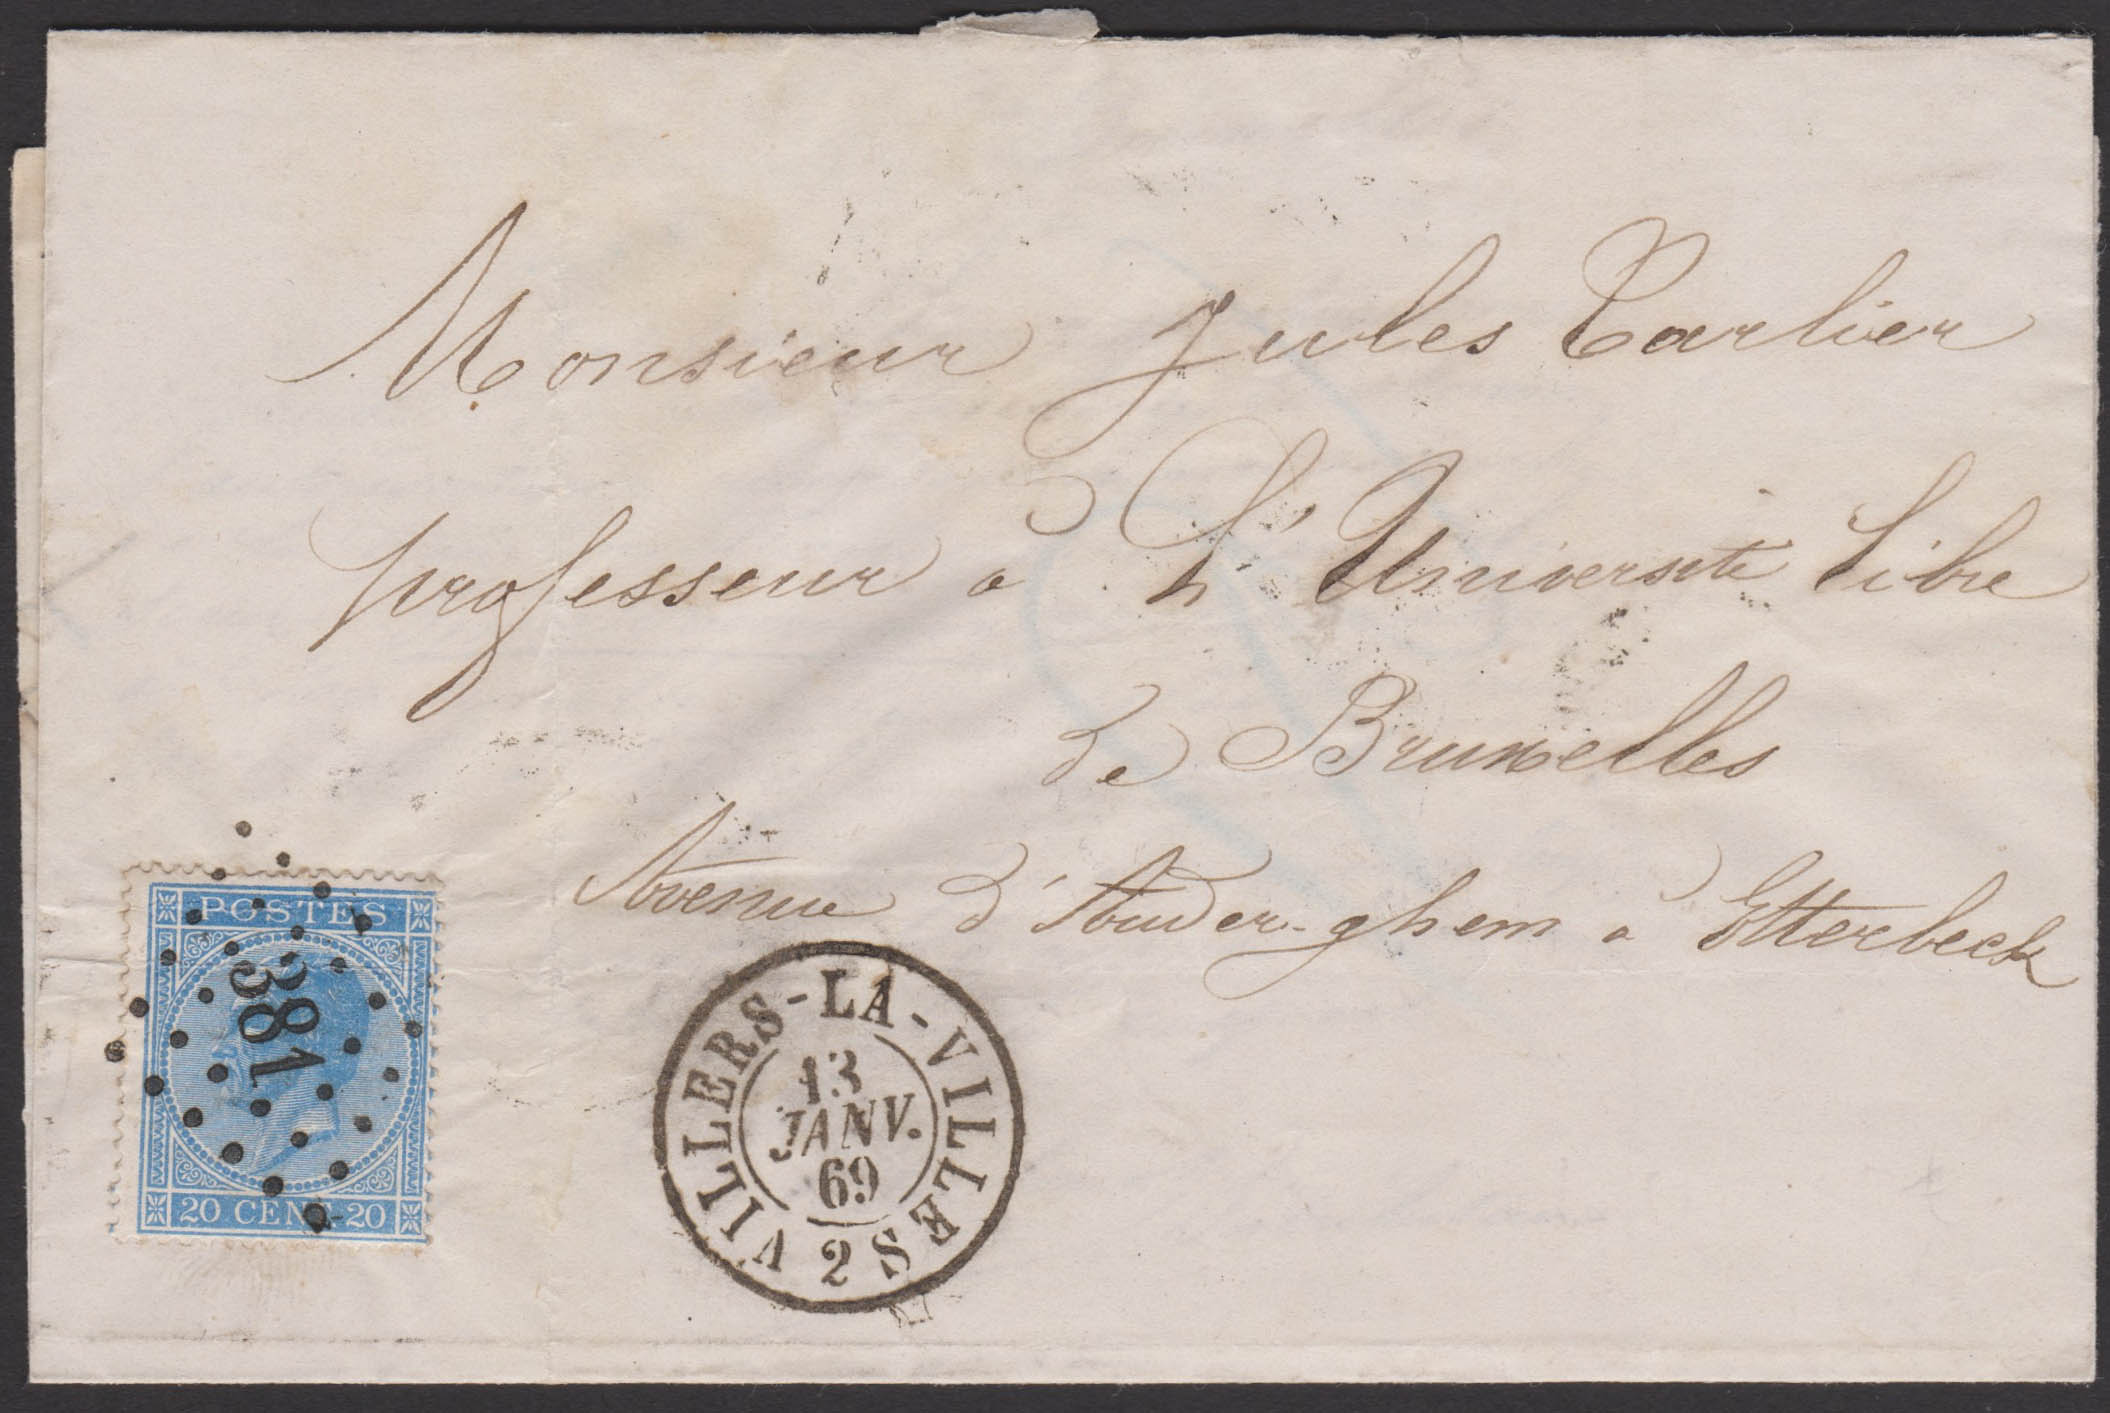 Monsieur Jules Carlier
professeur à L'Université libre
de Bruxelles
Avenue d'Auderghem à Etterbeck
POSTES
381
20 CENT 20
VILLERS-LA-VILLE
13
JANV.
69
2 S